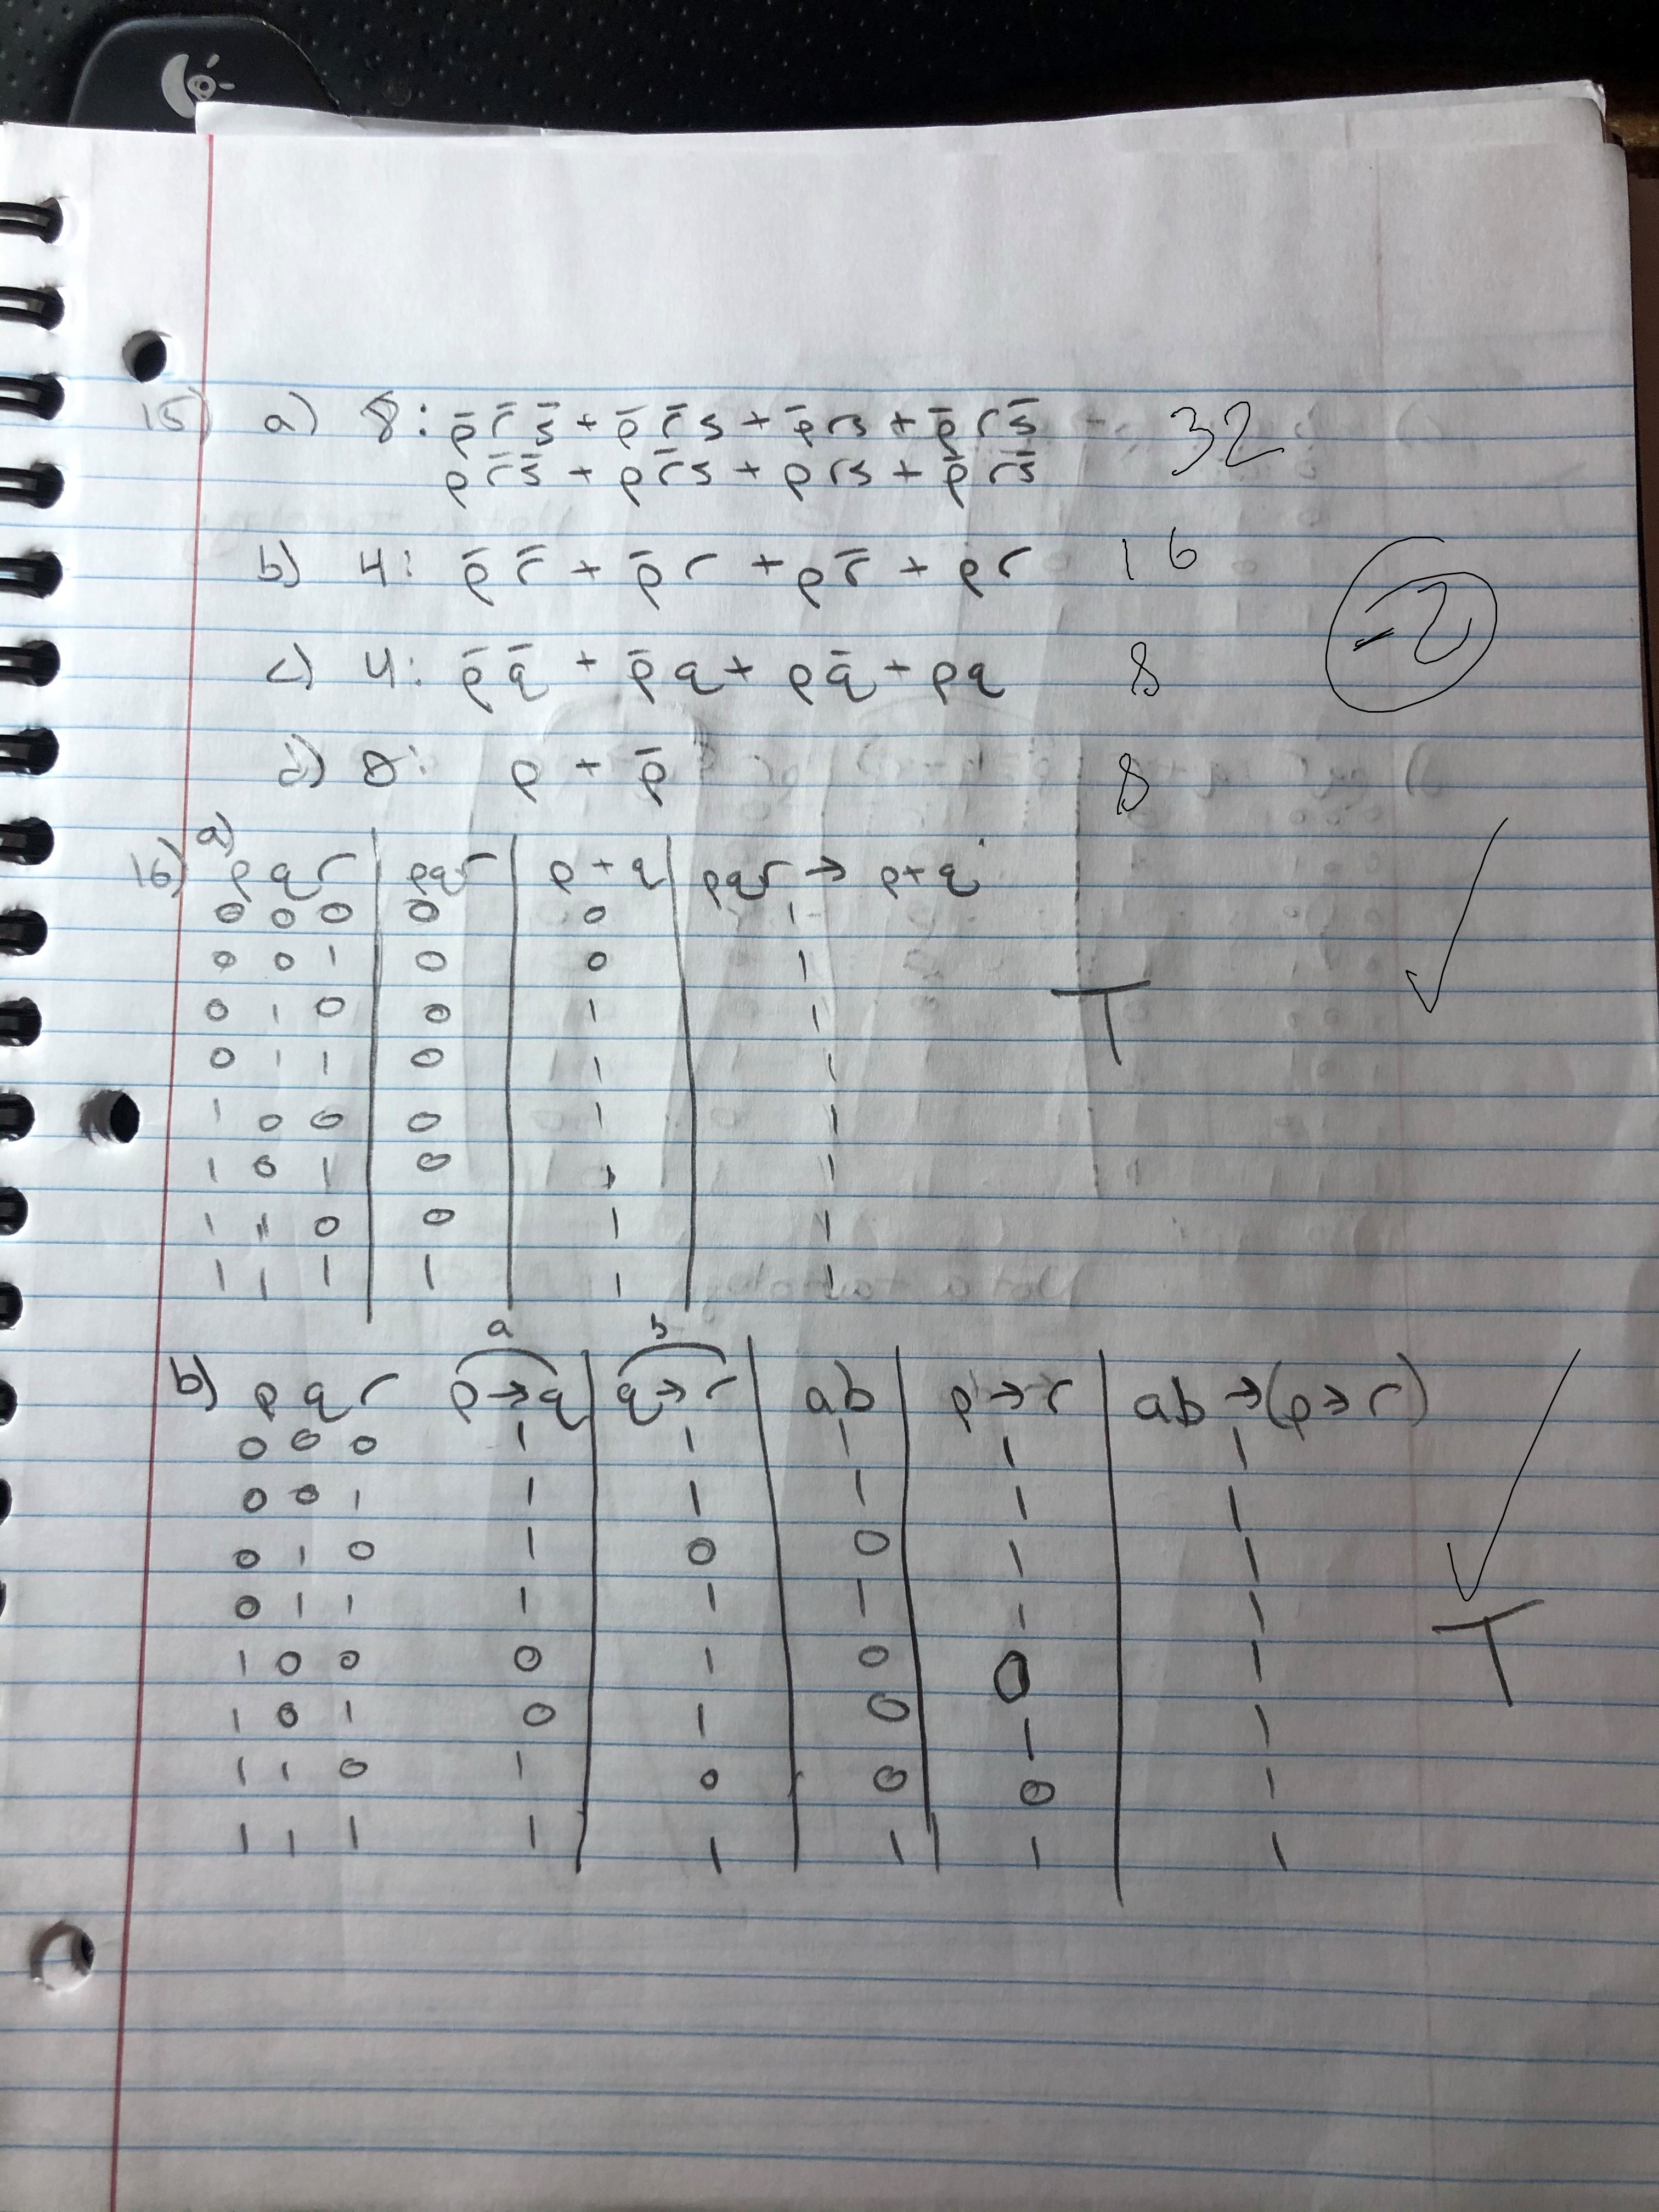 15) a) 8: p̄ r̄ s̄ + p̄ r̄ s + p̄ r s + p̄ r s̄ 32
p r̄ s̄ + p r̄ s + p r s + p̄ r s̄
b) 4: p̄ r̄ + p̄ r + p r̄ + p r 16
-2
c) 4: p̄ q̄ + p̄ q + p q̄ + p q 8
d) 0: p + p̄ 8
16) a) p q r | pqr | p + q | pqr → p+q
0 0 0 | 0 | 0 | 1
0 0 1 | 0 | 0 | 1
0 1 0 | 0 | 1 | 1 T ✓
0 1 1 | 0 | 1 | 1
1 0 0 | 0 | 1 | 1
1 0 1 | 0 | 1 | 1
1 1 0 | 0 | 1 | 1
1 1 1 | 1 | 1 | 1
a b
b) p q r p→q | q→r | ab | p→r | ab →(p→r)
0 0 0 1 | 1 | 1 | 1 | 1
0 0 1 1 | 1 | 1 | 1 | 1
0 1 0 1 | 0 | 0 | 1 | 1 ✓
0 1 1 1 | 1 | 1 | 1 | 1
1 0 0 0 | 1 | 0 | 0 | 1 T
1 0 1 0 | 1 | 0 | 1 | 1
1 1 0 1 | 0 | 0 | 0 | 1
1 1 1 1 | 1 | 1 | 1 | 1